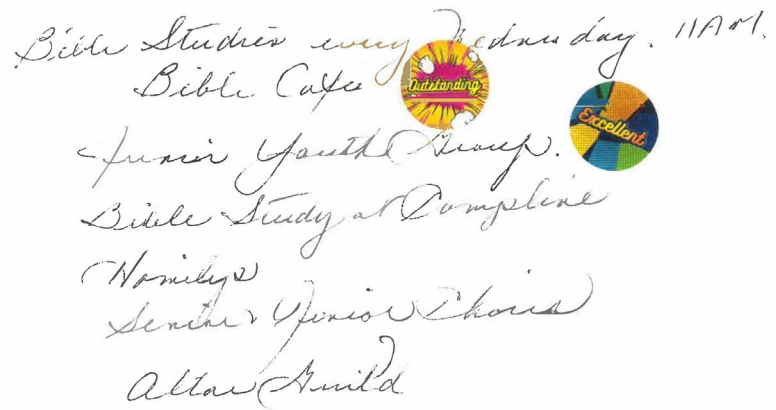 Bible Studies every Wednesday. 11 AM.
Bible Cafe
Outstanding
Excellent
Junior Youth Group.
Bible Study at Compline
Homilys
Senior & Junior Choirs
Altar Guild